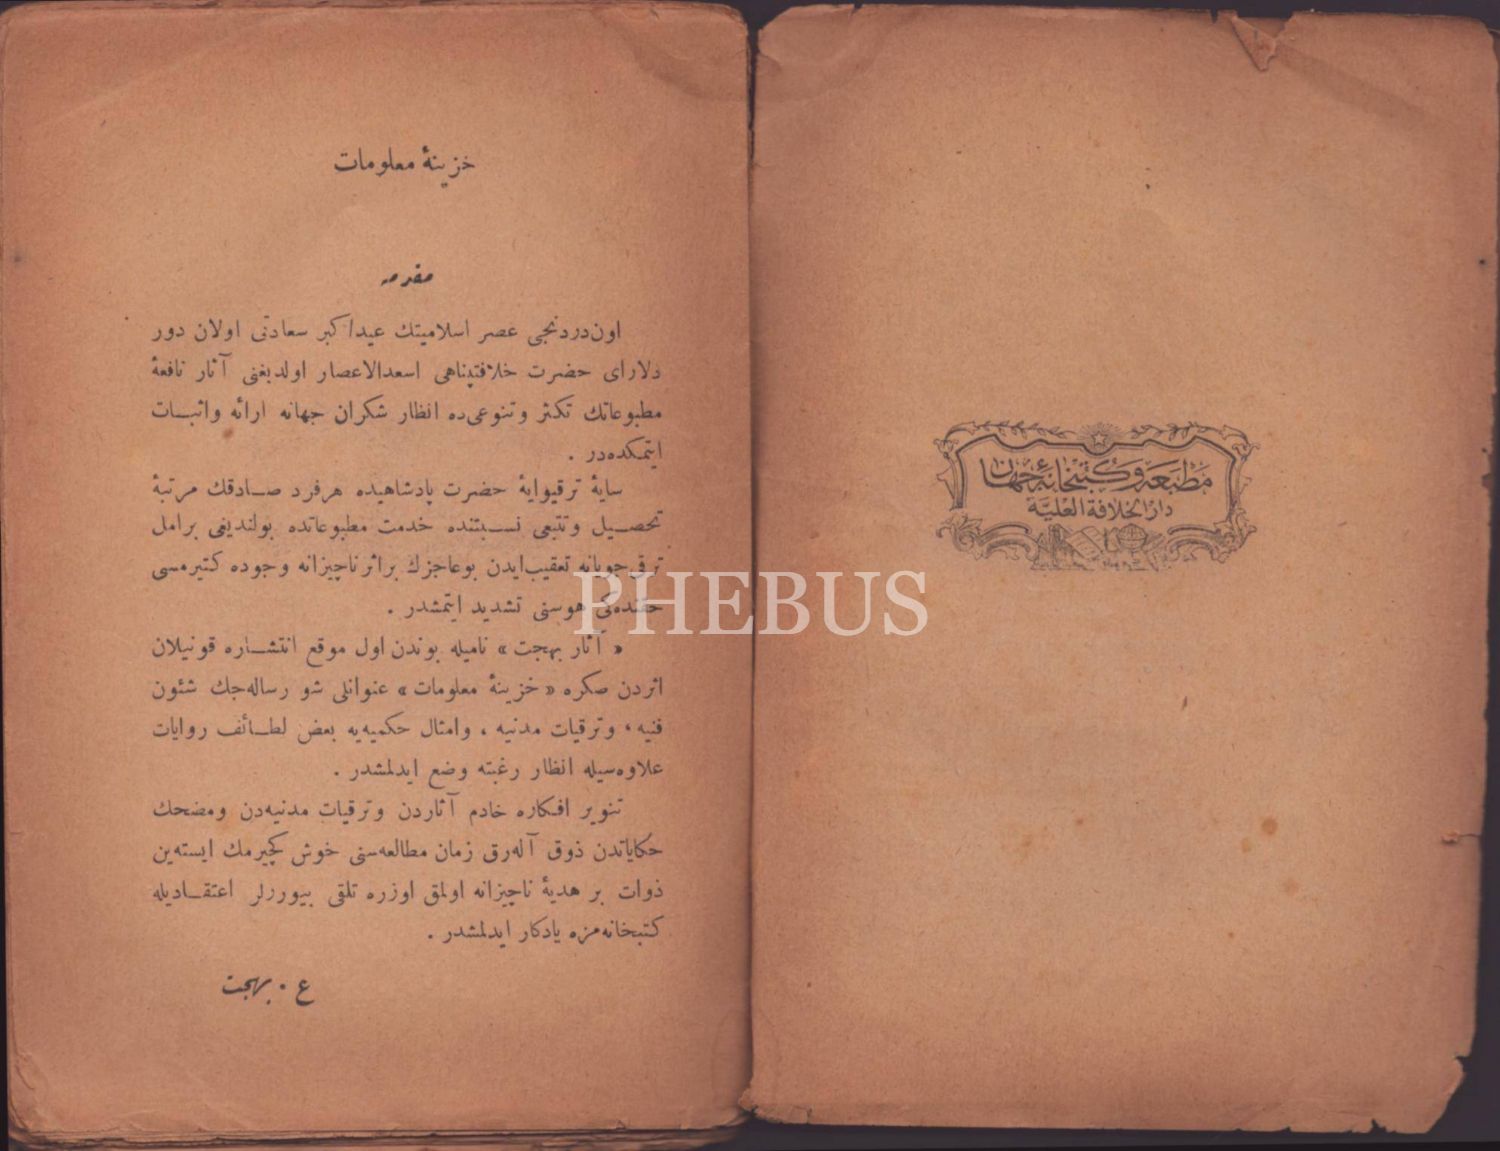 مطبعه و كتبخانهٔ جهان
دار الخلافة العليّة
خزينهٔ معلومات
مقدمه
اون‌دردنجی عصر اسلاميتك عيداكبر سعادتی اولان دور
دلارای حضرت خلافتپناهی اسعدالاعصار اولديغنی آثار نافعهٔ
مطبوعاتك تكثر وتنوعی‌ده انظار شكران جهانه ارائه واثبات
ايتمكده‌در .
سايهٔ ترقيوايهٔ حضرت پادشاهيده هرفرد صادقك مرتبهٔ
تحصيل وتتبعی نسبتنده خدمت مطبوعاتده بولنديغی برامل
ترقی‌جويانه تعقيب‌ايدن بوعاجزك براثرناچيزانه وجوده كتيرمسی
حقنده‌كی هوسنی تشديد ايتمشدر .
« آثار بهجت » ناميله بوندن اول موقع انتشاره قونيلان
اثردن صكره « خزينهٔ معلومات » عنوانلی شو رساله‌جك شئون
فنيه ، وترقيات مدنيه ، وامثال حكميه‌يه بعض لطائف روايات
علاوه‌سيله انظار رغبته وضع ايدلمشدر .
تنوير افكاره خادم آثاردن وترقيات مدنيه‌دن ومضحك
حكاياتدن ذوق آله‌رق زمان مطالعه‌سنی خوش كچيرمك ايسته‌ين
ذوات بر هديهٔ ناچيزانه اولمق اوزره تلقی بيوررلر اعتقاديله
كتبخانه‌مزه يادكار ايدلمشدر .
ع . بهجت
PHEBUS